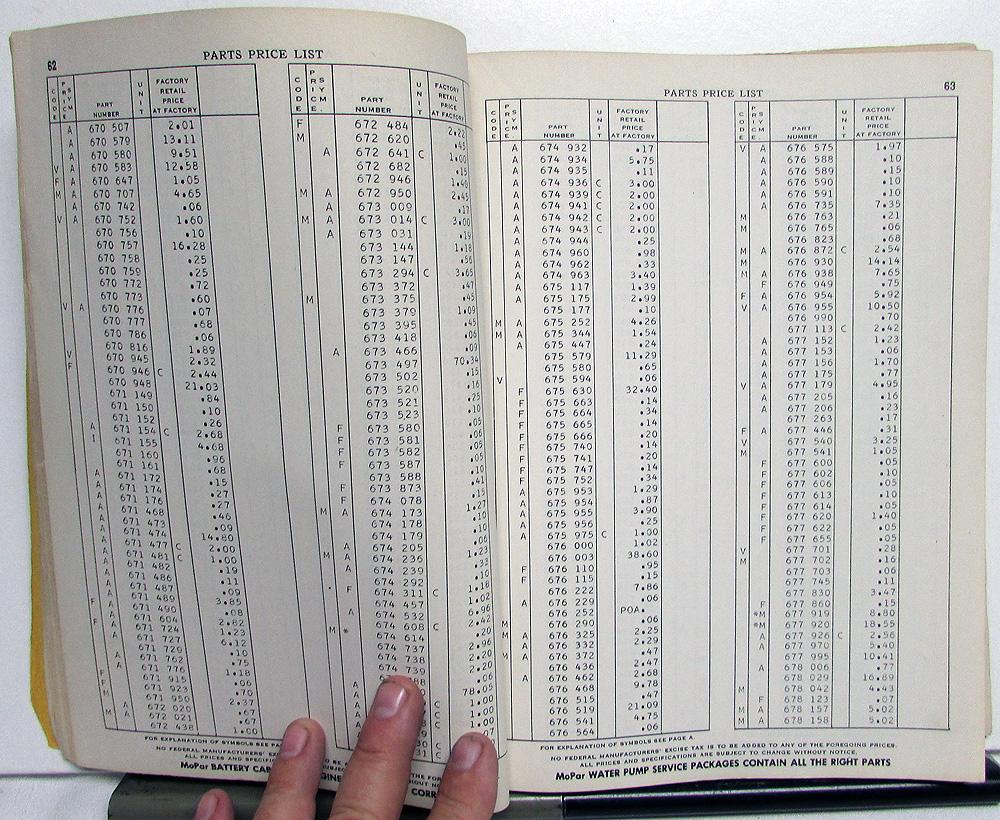 62
PARTS PRICE LIST
CODE PRICE SYM. PART NUMBER UNIT FACTORY RETAIL PRICE AT FACTORY
A 670 507 2.01
A 670 579 13.11
A 670 580 9.51
V A 670 583 12.58
F A 670 647 1.05
M A 670 707 4.65
A 670 742 .06
V A 670 752 1.60
670 756 .10
670 757 16.28
670 758 .25
670 759 .25
670 772 .72
670 773 .60
V A 670 776 .07
670 777 .68
670 786 .06
670 816 1.89
V 670 945 2.32
F 670 946 C 2.44
670 948 21.03
671 149 .84
671 150 .10
671 152 .26
A 671 154 C 2.68
I 671 155 4.68
671 160 .96
671 161 .68
A 671 172 .15
A 671 174 .27
A 671 176 .27
A 671 468 .46
A 671 473 .09
A 671 474 14.80
A 671 477 C 2.00
A 671 481 C 1.00
A 671 482 .19
A 671 486 .11
A 671 487 .09
A 671 489 3.85
F A 671 490 .08
A 671 604 2.82
F A 671 724 1.23
A 671 727 6.12
671 729 .10
A 671 762 .75
A 671 776 1.18
F 671 915 .06
F 671 923 .70
M 671 950 2.37
A 672 020 .67
M A 672 021 .67
672 438 1.00
CODE PRICE SYM. PART NUMBER UNIT FACTORY RETAIL PRICE AT FACTORY
F 672 484 2.22
M 672 620 .45
A 672 641 C 1.00
672 682 .15
672 946 1.40
M A 672 950 2.45
A 673 009 .17
M A 673 014 C 3.00
A 673 031 .19
673 144 1.18
673 147 .56
673 294 C 3.65
673 372 .47
M 673 375 .45
673 379 1.09
673 395 .45
673 418 .06
A 673 466 .09
673 497 70.34
673 502 .15
673 520 .16
673 521 .25
673 523 .10
F 673 580 .05
F 673 581 .06
F 673 582 .05
F 673 587 .05
673 588 .10
F 673 873 .41
F 674 078 .15
M A 674 173 1.27
674 178 .10
674 179 .10
A 674 205 .06
M A 674 236 1.23
A 674 239 .33
674 292 .10
F 674 311 C 1.18
674 457 1.02
A 674 532 6.96
674 608 C 2.42
M * 674 614 .20
674 737 2.96
674 738 2.20
674 739 2.20
.06
78.05
C 1.00
C 1.00
C 1.00
FOR EXPLANATION OF SYMBOLS SEE PA
NO FEDERAL MANUFACTURERS' EXCISE TAX IS TO BE
ALL PRICES AND SPECIFICATIONS ARE SUBJEC
MoPar BATTERY CAB
CORR
63
PARTS PRICE LIST
CODE PRICE SYM. PART NUMBER UNIT FACTORY RETAIL PRICE AT FACTORY
A 674 932 .17
A 674 934 5.75
A 674 935 .11
A 674 936 C 3.00
A 674 939 C 2.00
A 674 941 C 2.00
A 674 942 C 2.00
A 674 943 C 2.00
A 674 944 .25
A 674 960 .98
A 674 962 .33
A 674 963 3.40
A 675 117 1.39
A 675 175 2.99
675 177 .10
M A 675 252 4.26
M A 675 344 1.54
A 675 447 .24
675 579 11.29
675 580 .65
V 675 594 .06
F 675 630 32.40
F 675 663 .14
F 675 664 .34
F 675 665 .14
F 675 666 .20
F 675 740 .14
F 675 741 .20
F 675 747 .14
F 675 752 .34
A 675 953 1.29
A 675 954 .87
A 675 955 3.90
A 675 956 .25
A 675 975 C 1.00
676 000 1.02
676 003 38.60
F 676 110 .95
F 676 115 .15
676 222 7.86
A 676 229 .06
676 252 POA.
M 676 290 .06
M A 676 325 2.25
A 676 332 2.29
M A 676 372 .47
676 436 2.47
A 676 462 2.68
676 468 9.78
676 515 .47
676 519 21.09
676 541 4.75
676 564 .06
CODE PRICE SYM. PART NUMBER UNIT FACTORY RETAIL PRICE AT FACTORY
V A 676 575 1.97
A 676 588 .10
A 676 589 .15
A 676 590 .10
A 676 591 .10
A 676 735 7.35
M 676 763 .21
M 676 765 .06
676 823 .68
M A 676 872 C 2.54
M 676 930 14.14
M A 676 938 7.65
F 676 949 .75
F A 676 954 5.92
V A 676 955 10.50
676 990 .70
677 113 C 2.42
A 677 152 1.23
A 677 153 .06
A 677 156 1.70
A 677 175 .77
V A 677 179 4.95
A 677 205 .16
A 677 206 .23
677 263 .17
F A 677 446 .31
V 677 540 3.25
M 677 541 1.05
F 677 600 .05
F 677 602 .10
F 677 606 .05
F 677 613 .10
F 677 614 .05
F 677 620 1.40
F 677 622 .05
F 677 655 .05
V 677 701 .28
M 677 702 .16
677 703 .06
677 745 .11
677 830 3.47
F 677 860 .15
*M 677 919 8.80
*M 677 920 18.55
A 677 926 C 2.56
A 677 970 5.40
677 995 10.41
A 678 006 .77
678 029 16.89
M 678 042 4.43
F 678 123 .07
M A 678 157 5.02
M A 678 158 5.02
FOR EXPLANATION OF SYMBOLS SEE PAGE A.
NO FEDERAL MANUFACTURERS' EXCISE TAX IS TO BE ADDED TO ANY OF THE FOREGOING PRICES.
ALL PRICES AND SPECIFICATIONS ARE SUBJECT TO CHANGE WITHOUT NOTICE.
MoPar WATER PUMP SERVICE PACKAGES CONTAIN ALL THE RIGHT PARTS